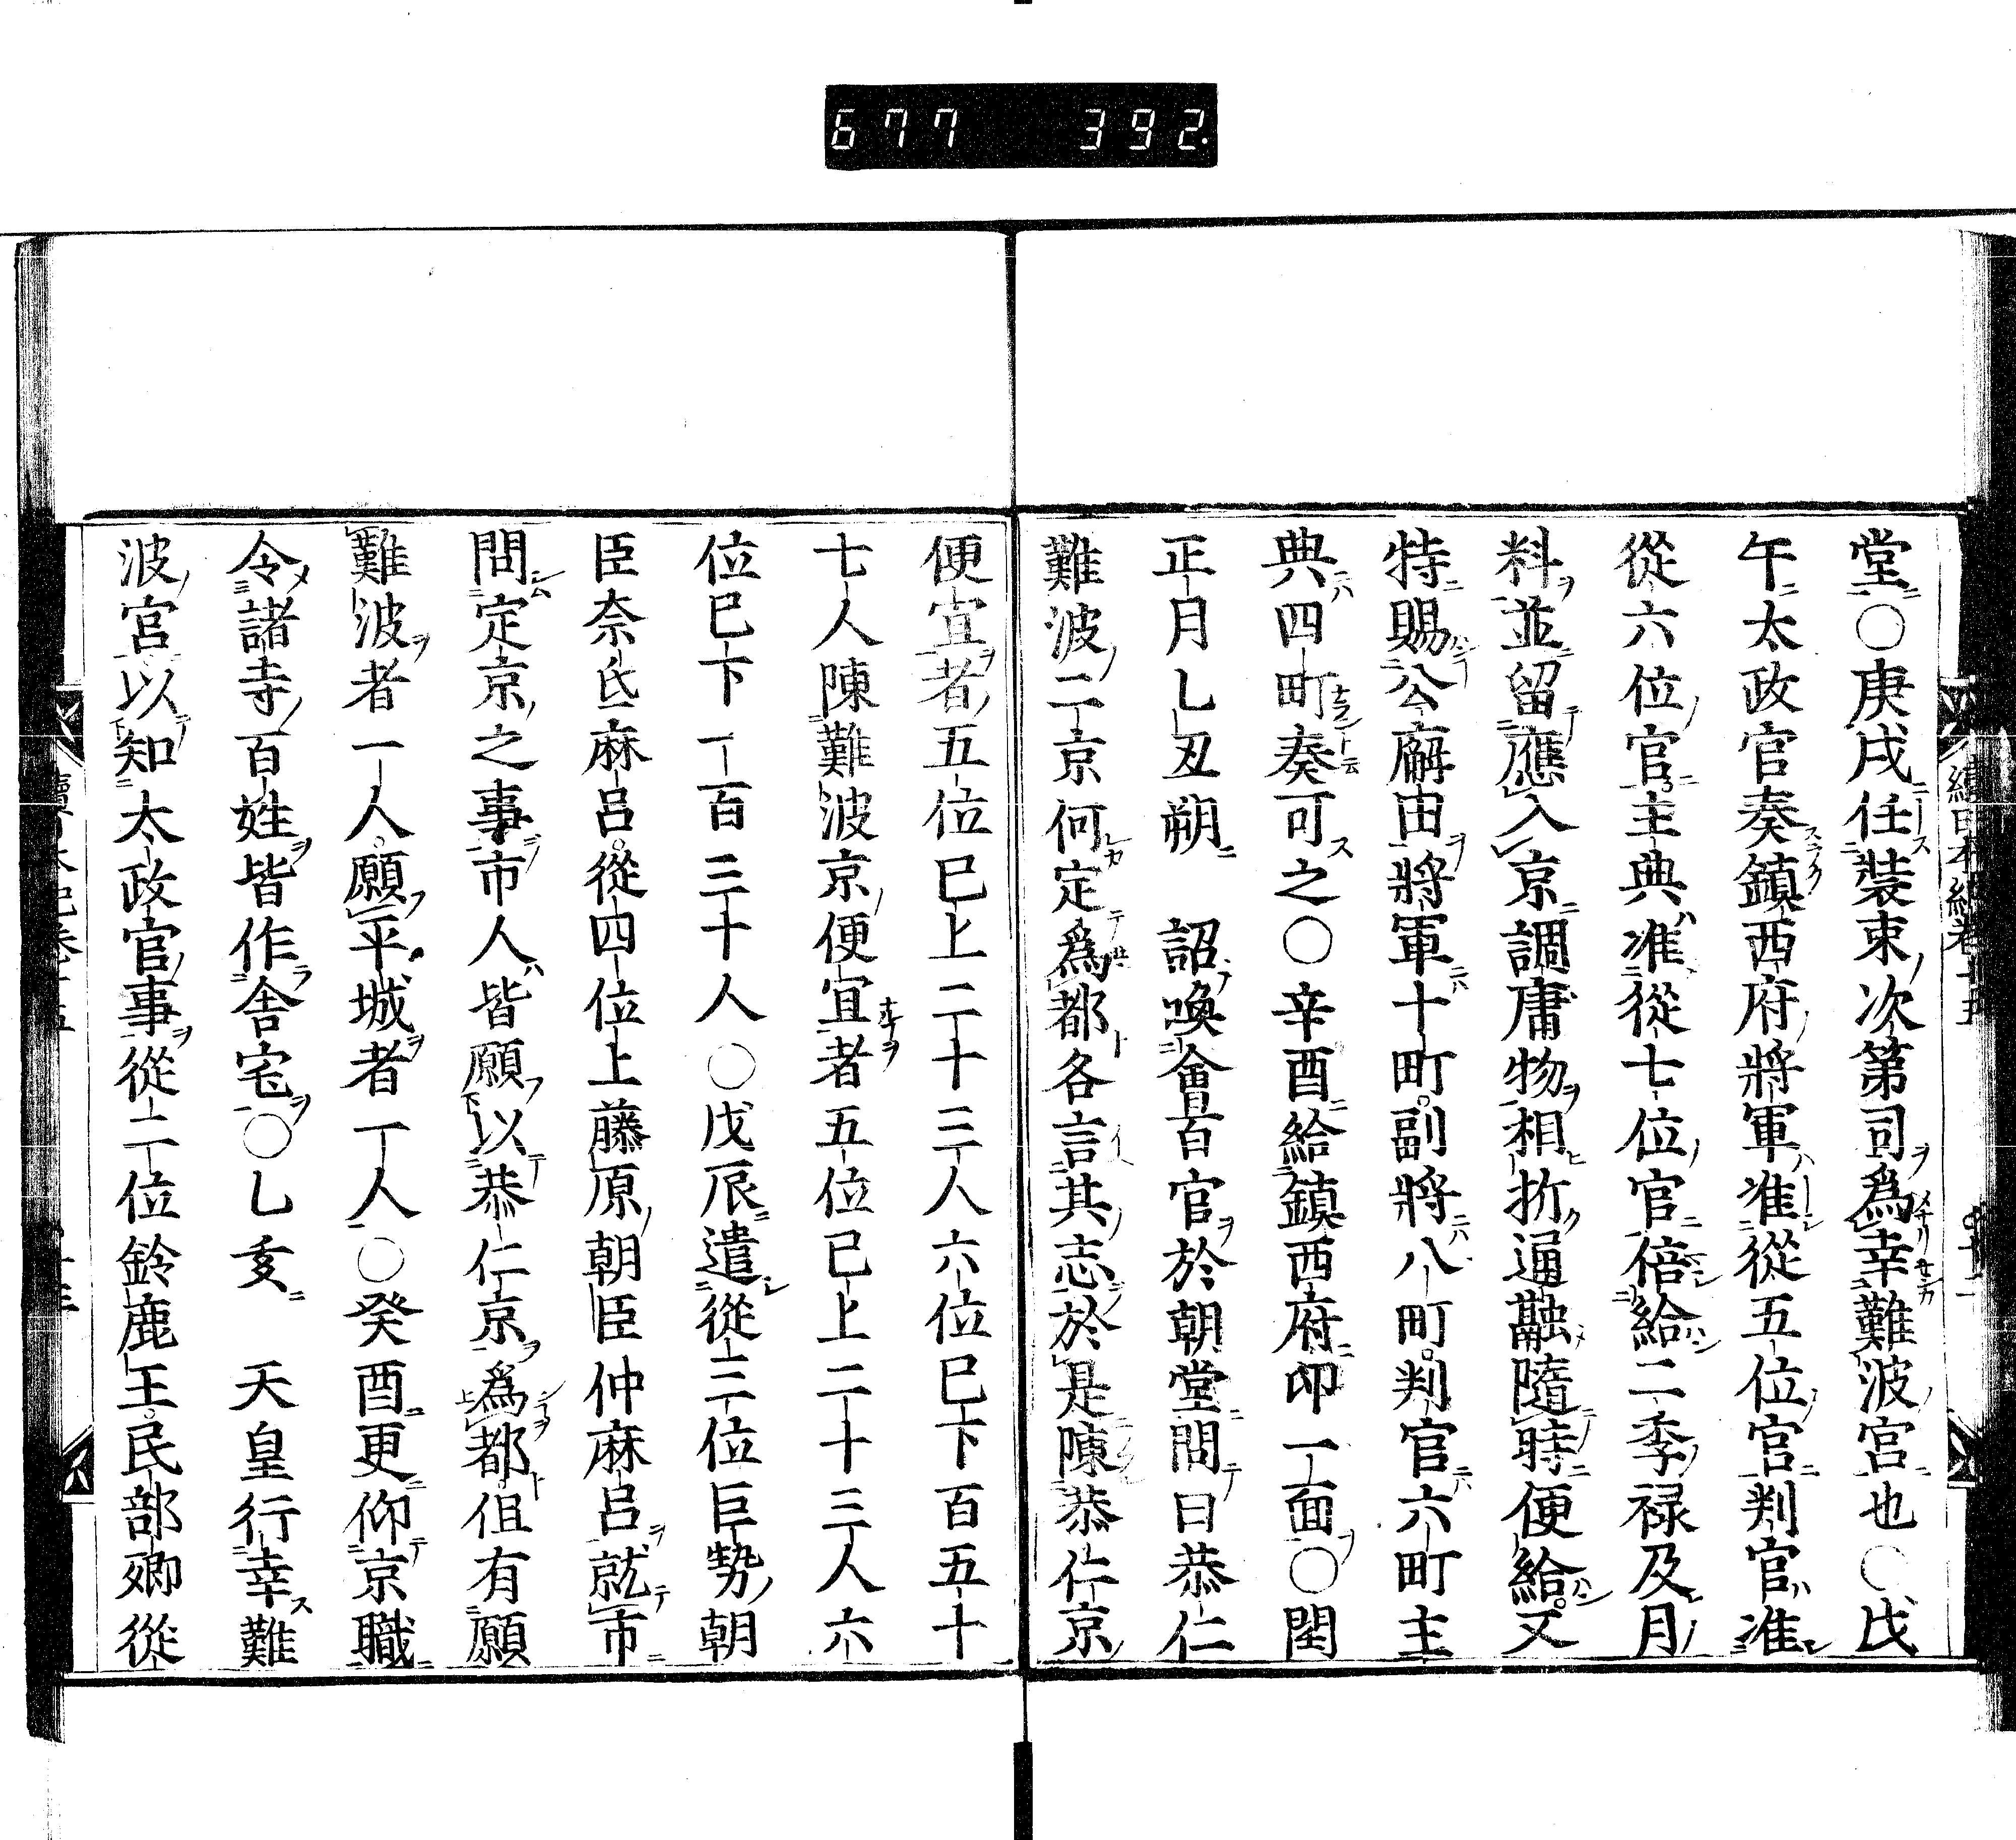 677 392.
堂○庚戌任裝束次第司爲幸難波宮也○戊
午太政官奏鎮西府將軍准從五位官判官准
從六位官主典准從七位官倍給二季禄及月
料並留應入京調庸物相折通融隨時便給又
特賜公廨由將軍十町副將八町判官六町主
典四町奏可之○辛酉給鎮西府印一面○閏
正月乚丑朔　詔喚會百官於朝堂問曰恭仁
難波二京何定爲都各言其志於是陳恭仁京
便宜者五位巳上二十三人六位巳下百五十
七人陳難波京便宜者五位巳上二十三人六
位巳下一百三十人○戊辰遣從三位巨勢朝
臣奈氐麻呂從四位上藤原朝臣仲麻呂就市
問定京之事市人皆願以恭仁京爲都但有願
難波者一人願平城者一人○癸酉更仰京職
令諸寺百姓皆作舍宅○乚亥　天皇行幸難
波宮以知太政官事從二位鈴鹿王民部卿從